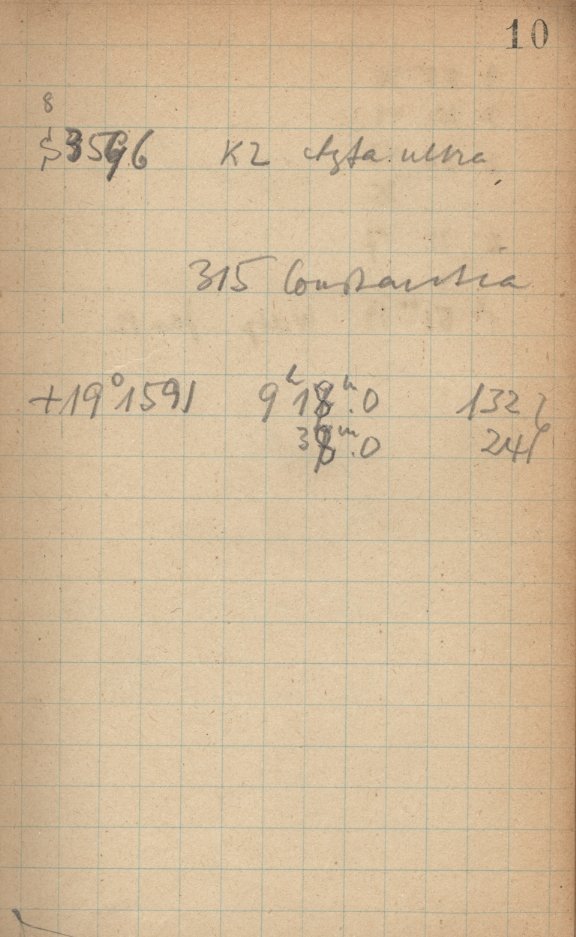 10
8
3596 K2 Agfa ultra
315 Constantia
+19°1591 9ʰ18ᵐ.0 132
38ᵐ.0 24